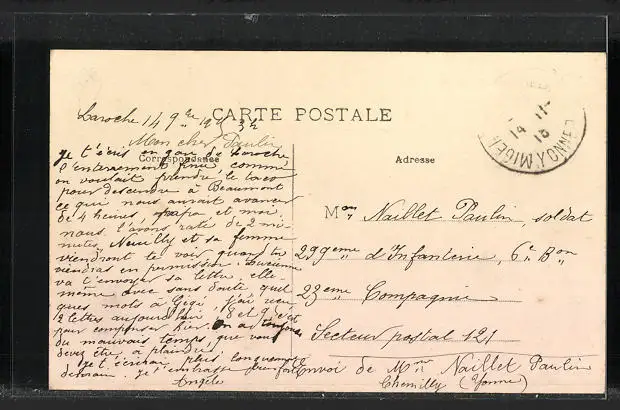 Laroche 14 9bre 19 3h
CARTE POSTALE
Mon cher Paulin
Correspondance
Adresse
Je t'écris en gare de Laroche,
l'enterrement fini comme
on voulait prendre le taco
pour descendre à Beaumont
ce qui nous aurait avancé
de 4 heures, papa et moi
nous l'avons raté de 2 mi-
nutes. Neuilly et sa femme
viendront te voir quand tu
viendras en permission. Lucienne
va t'envoyer sa lettre elle-
même avec sans doute quel
ques mots à Gigi. J'ai reçu
2 lettres aujourd'hui 8 et 9 c'est
pour compenser hier. On a toujours
du mauvais temps, que vous
devez être à plaindre
Je t'écrirai plus longuement
demain. Je t'embrasse bien fort
Angèle
Mon Naillet Paulin, soldat
299eme d'Infanterie, 6e Bon
23eme Compagnie
Secteur postal 121
Envoi de Mr Naillet Paulin
Chemilly (Yonne)
MIGENNES YONNE
14 11
16